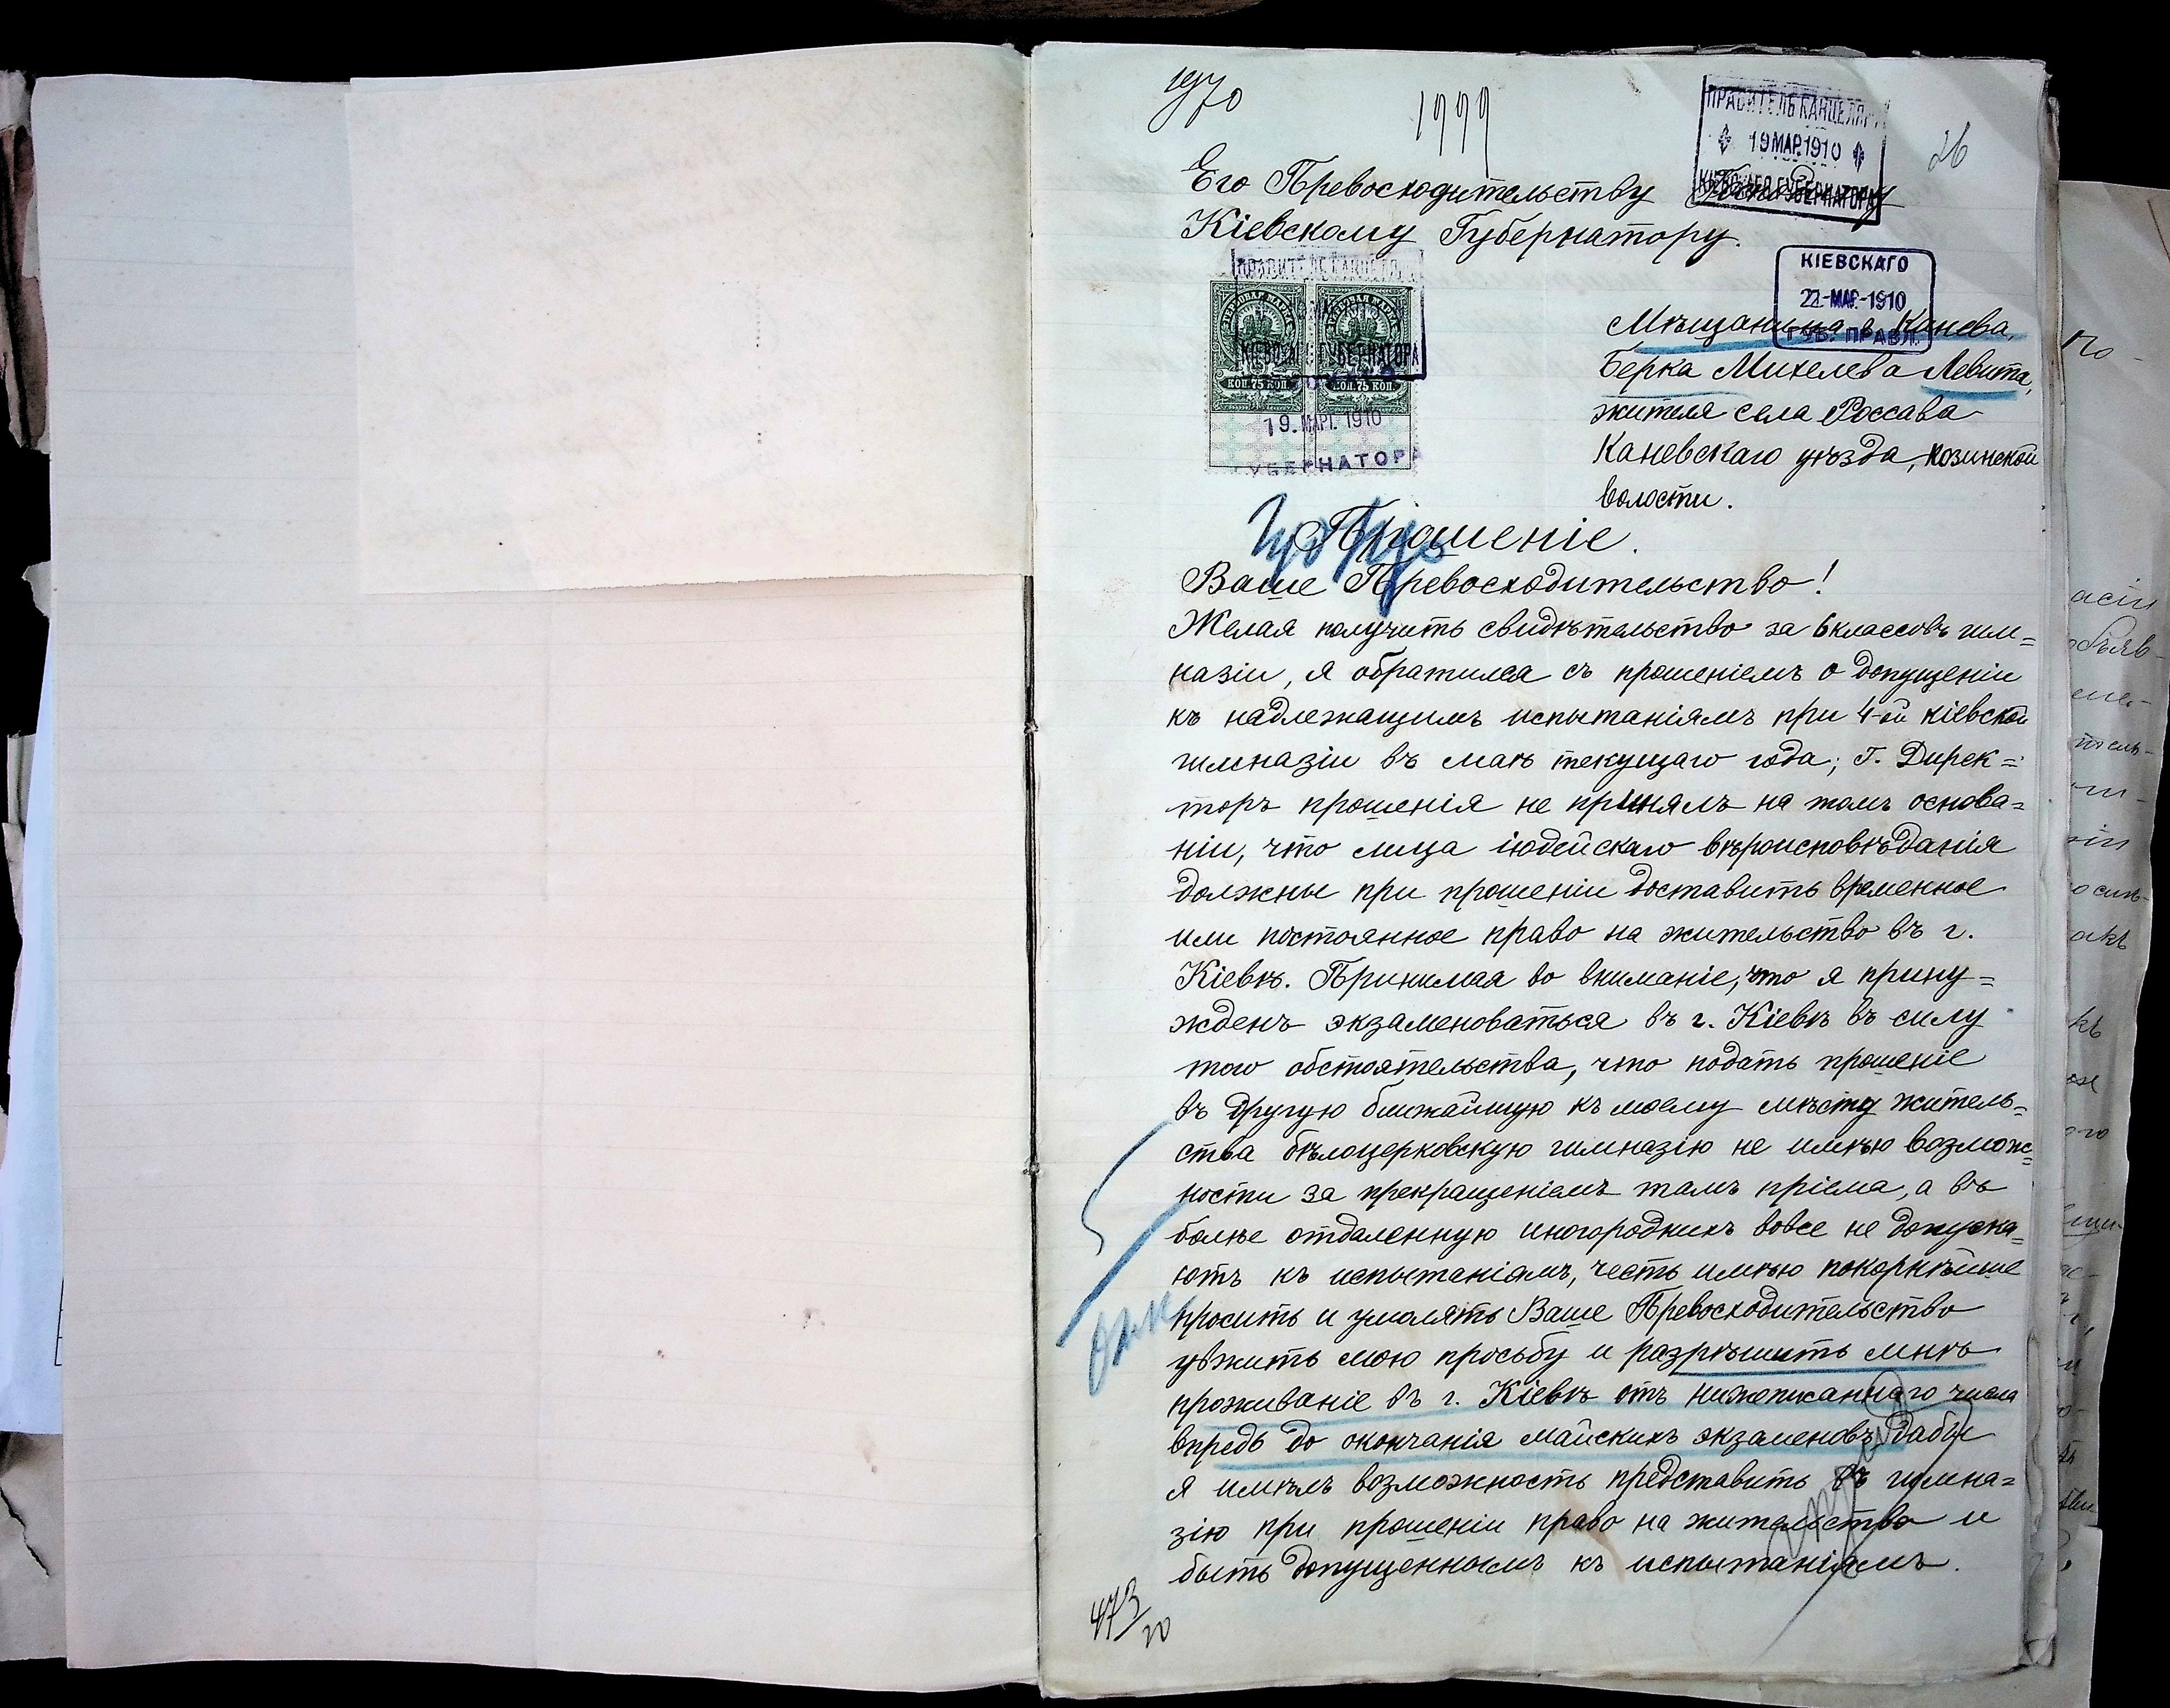 1970
1999
26
ПРАВИТЕЛЬ КАНЦЕЛЯРІИ
19 МАР. 1910
КІЕВСКАГО ГУБЕРНАТОРА
Его Превосходительству Господину
Кіевскому Губернатору.
КІЕВСКАГО
22 МАР. 1910
ГУБ. ПРАВЛ.
ГЕРБОВАЯ МАРКА ГЕРБОВАЯ МАРКА
КОП. 75 КОП. КОП. 75 КОП.
19. МАРТ. 1910
ГУБЕРНАТОРА
Мѣщанина г. Канева,
Берка Михелева Левита,
жителя села Россава
Каневскаго уѣзда, козинской
волости.
Прошеніе.
Ваше Превосходительство!
Желая получить свидѣтельство за 6 классовъ гим=
назіи, я обратился съ прошеніемъ о допущеніи
къ надлежащимъ испытаніямъ при 4-ой кіевской
гимназіи въ маѣ текущаго года; Г. Дирек=
торъ прошенія не принялъ на томъ основа=
ніи, что лица іюдейскаго вѣроисповѣданія
должны при прошеніи доставить временное
или постоянное право на жительство въ г.
Кіевѣ. Принимая во вниманіе, что я прину=
жденъ экзаменоваться въ г. Кіевѣ въ силу
того обстоятельства, что подать прошеніе
въ другую ближайшую къ моему мѣсту житель=
ства бѣлоцерковскую гимназію не имѣю возмож=
ности за прекращеніемъ тамъ пріема, а въ
болѣе отдаленную иногороднихъ вовсе не допуска=
ютъ къ испытаніямъ, честь имѣю покорнѣйше
просить и умолять Ваше Превосходительство
уважить мою просьбу и разрѣшить мнѣ
проживаніе въ г. Кіевѣ отъ нижеписаннаго числа
впредь до окончанія майскихъ экзаменовъ, дабы
я имѣлъ возможность представить въ гимна=
зію при прошеніи право на жительство и
быть допущеннымъ къ испытаніямъ.
473/10